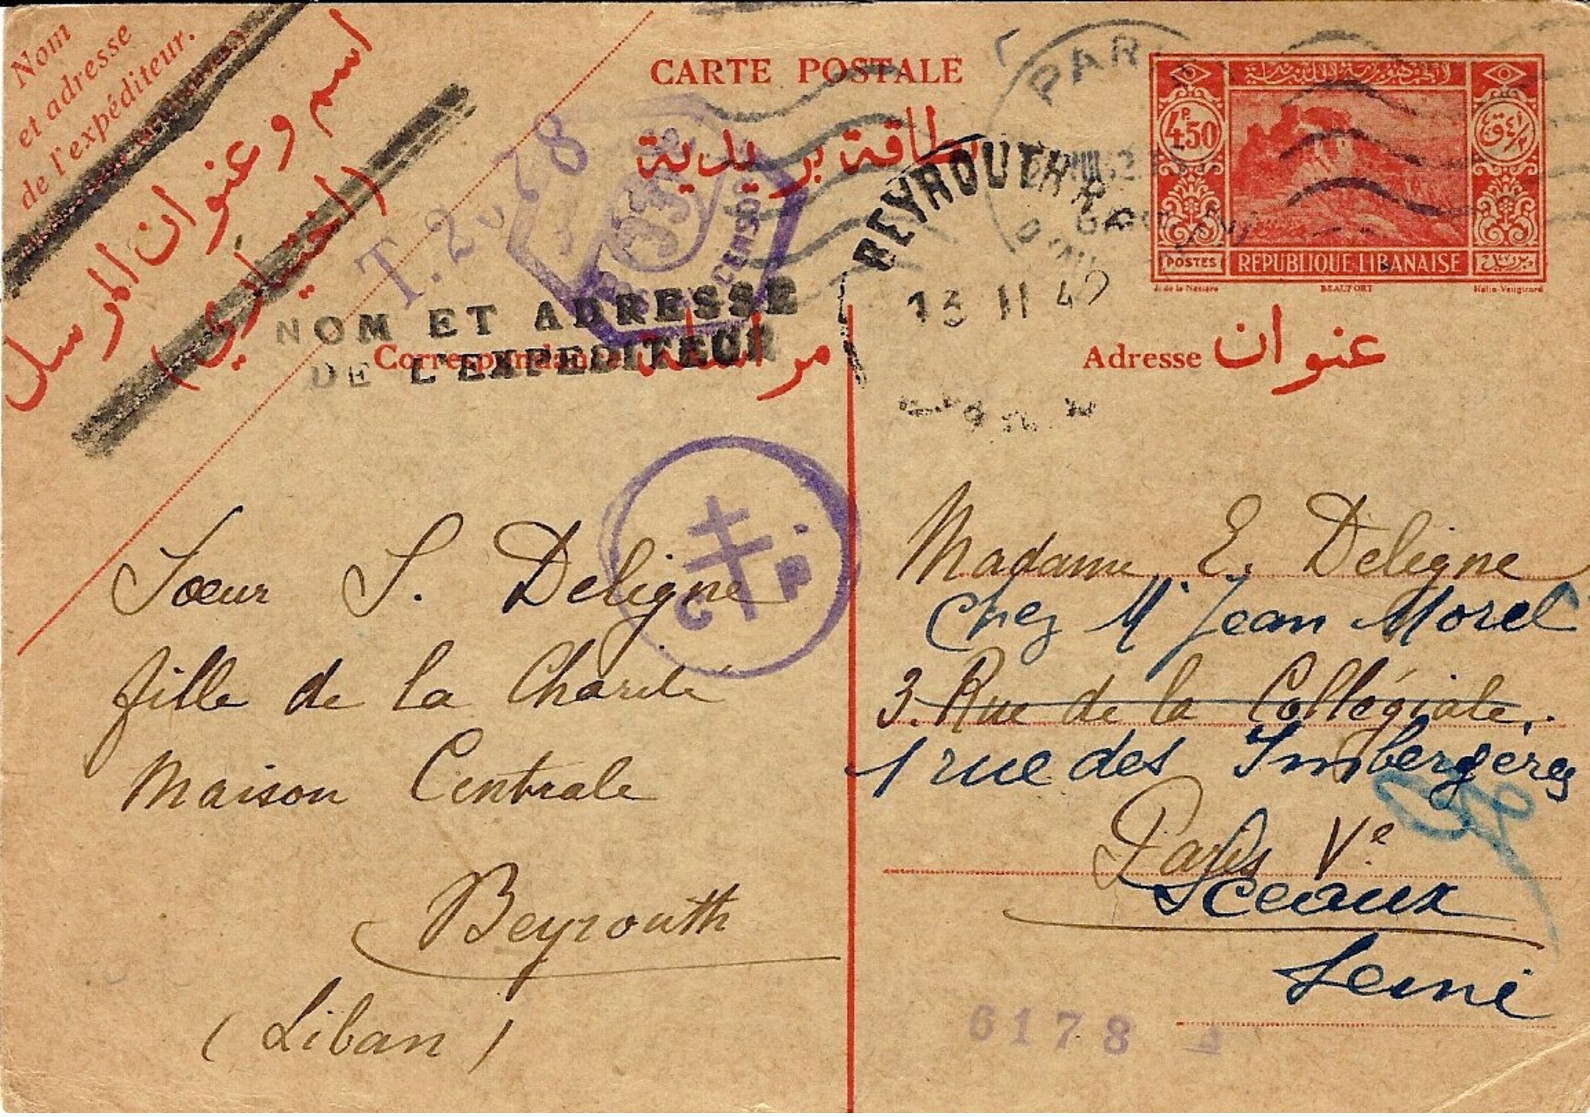 Nom
et adresse
de l'expéditeur.
اسم وعنوان المرسل
(اختياري)
CARTE POSTALE
بطاقة بريدية
T. 2078
NOM ET ADRESSE
DE L'EXPEDITEUR
Correspondance مراسلة
PARIS
BEYROUTH R.P
13 11 42
4P.50
POSTES
REPUBLIQUE LIBANAISE
J. de la Nézière BEAUFORT Hélio-Vaugirard
Adresse عنوان
C P
Sœur S. Deligne
fille de la Charité
Maison Centrale
Beyrouth
(Liban)
Madame E. Deligne
Chez Mr Jean Morel
3. Rue de la Collégiale.
1 rue des Imbergères
Paris Ve
Sceaux
Seine
6178